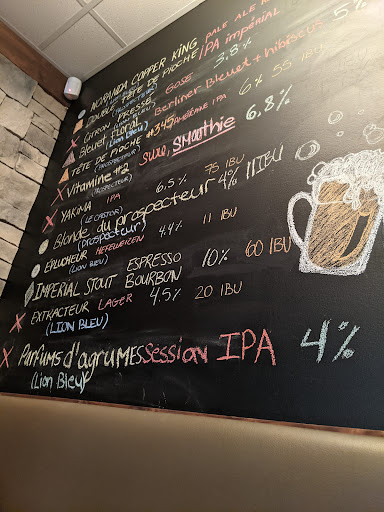 NORANDA COPPER KING PALE ALE
DOUBLE TÊTE DE PIOCHE IPA impérial
(PROSPECTEUR)
CITRON PRESSÉ GOSE 3.8% 5%
(LION BLEU)
Bleuet Floral Berliner Bleuet + hibiscus
(Lion Bleu)
TÊTE DE PIOCHE #345 IPA 6% 55 IBU
(PROSPECTEUR)
Vitamine #2 sure, SMOOTHIE 6.8%
(PROSPECTEUR)
YAKIMA IPA 6.5% 75 IBU
(LE CASTOR)
Blonde du prospecteur 4% 11 IBU
(Prospecteur)
EPLUCHEUR HEFEWEIZEN 4.4% 11 IBU
(LION BLEU)
IMPERIAL STOUT ESPRESSO BOURBON 10% 60 IBU
EXTRACTEUR LAGER 4.5% 20 IBU
(LION BLEU)
Parfums d'agrumes Session IPA 4%
(Lion Bleu)